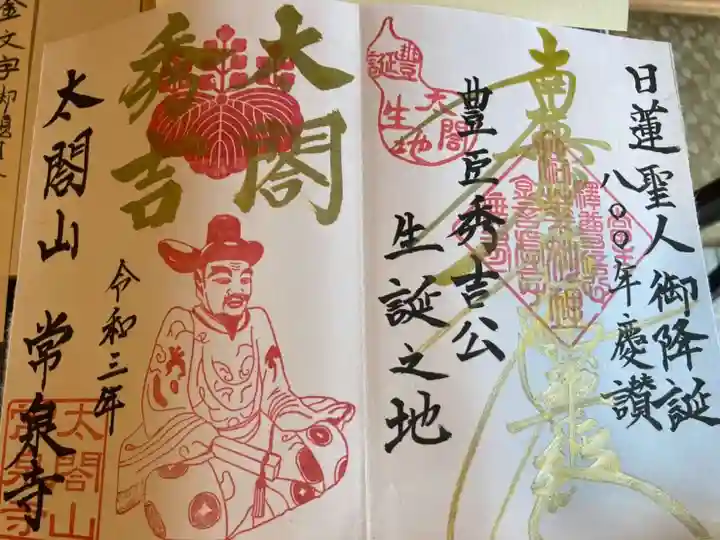 日蓮聖人御降誕
八〇〇年慶讃
南無妙法蓮華経
豊臣秀吉公
生誕之地
豊太閤
誕生地
太閤
秀吉
令和三年
太閤山 常泉寺
太閤山
常泉寺